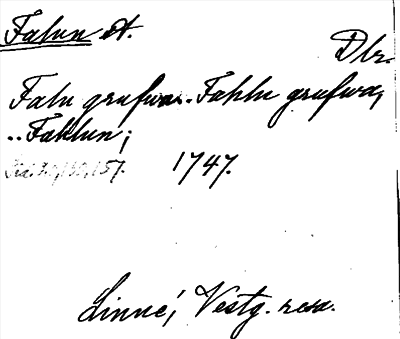 Falun st. Dlr.
Falu grufwa.. Fahlu grufwa,
.. Fahlun;
1747.
Linné, Vestg. resa.